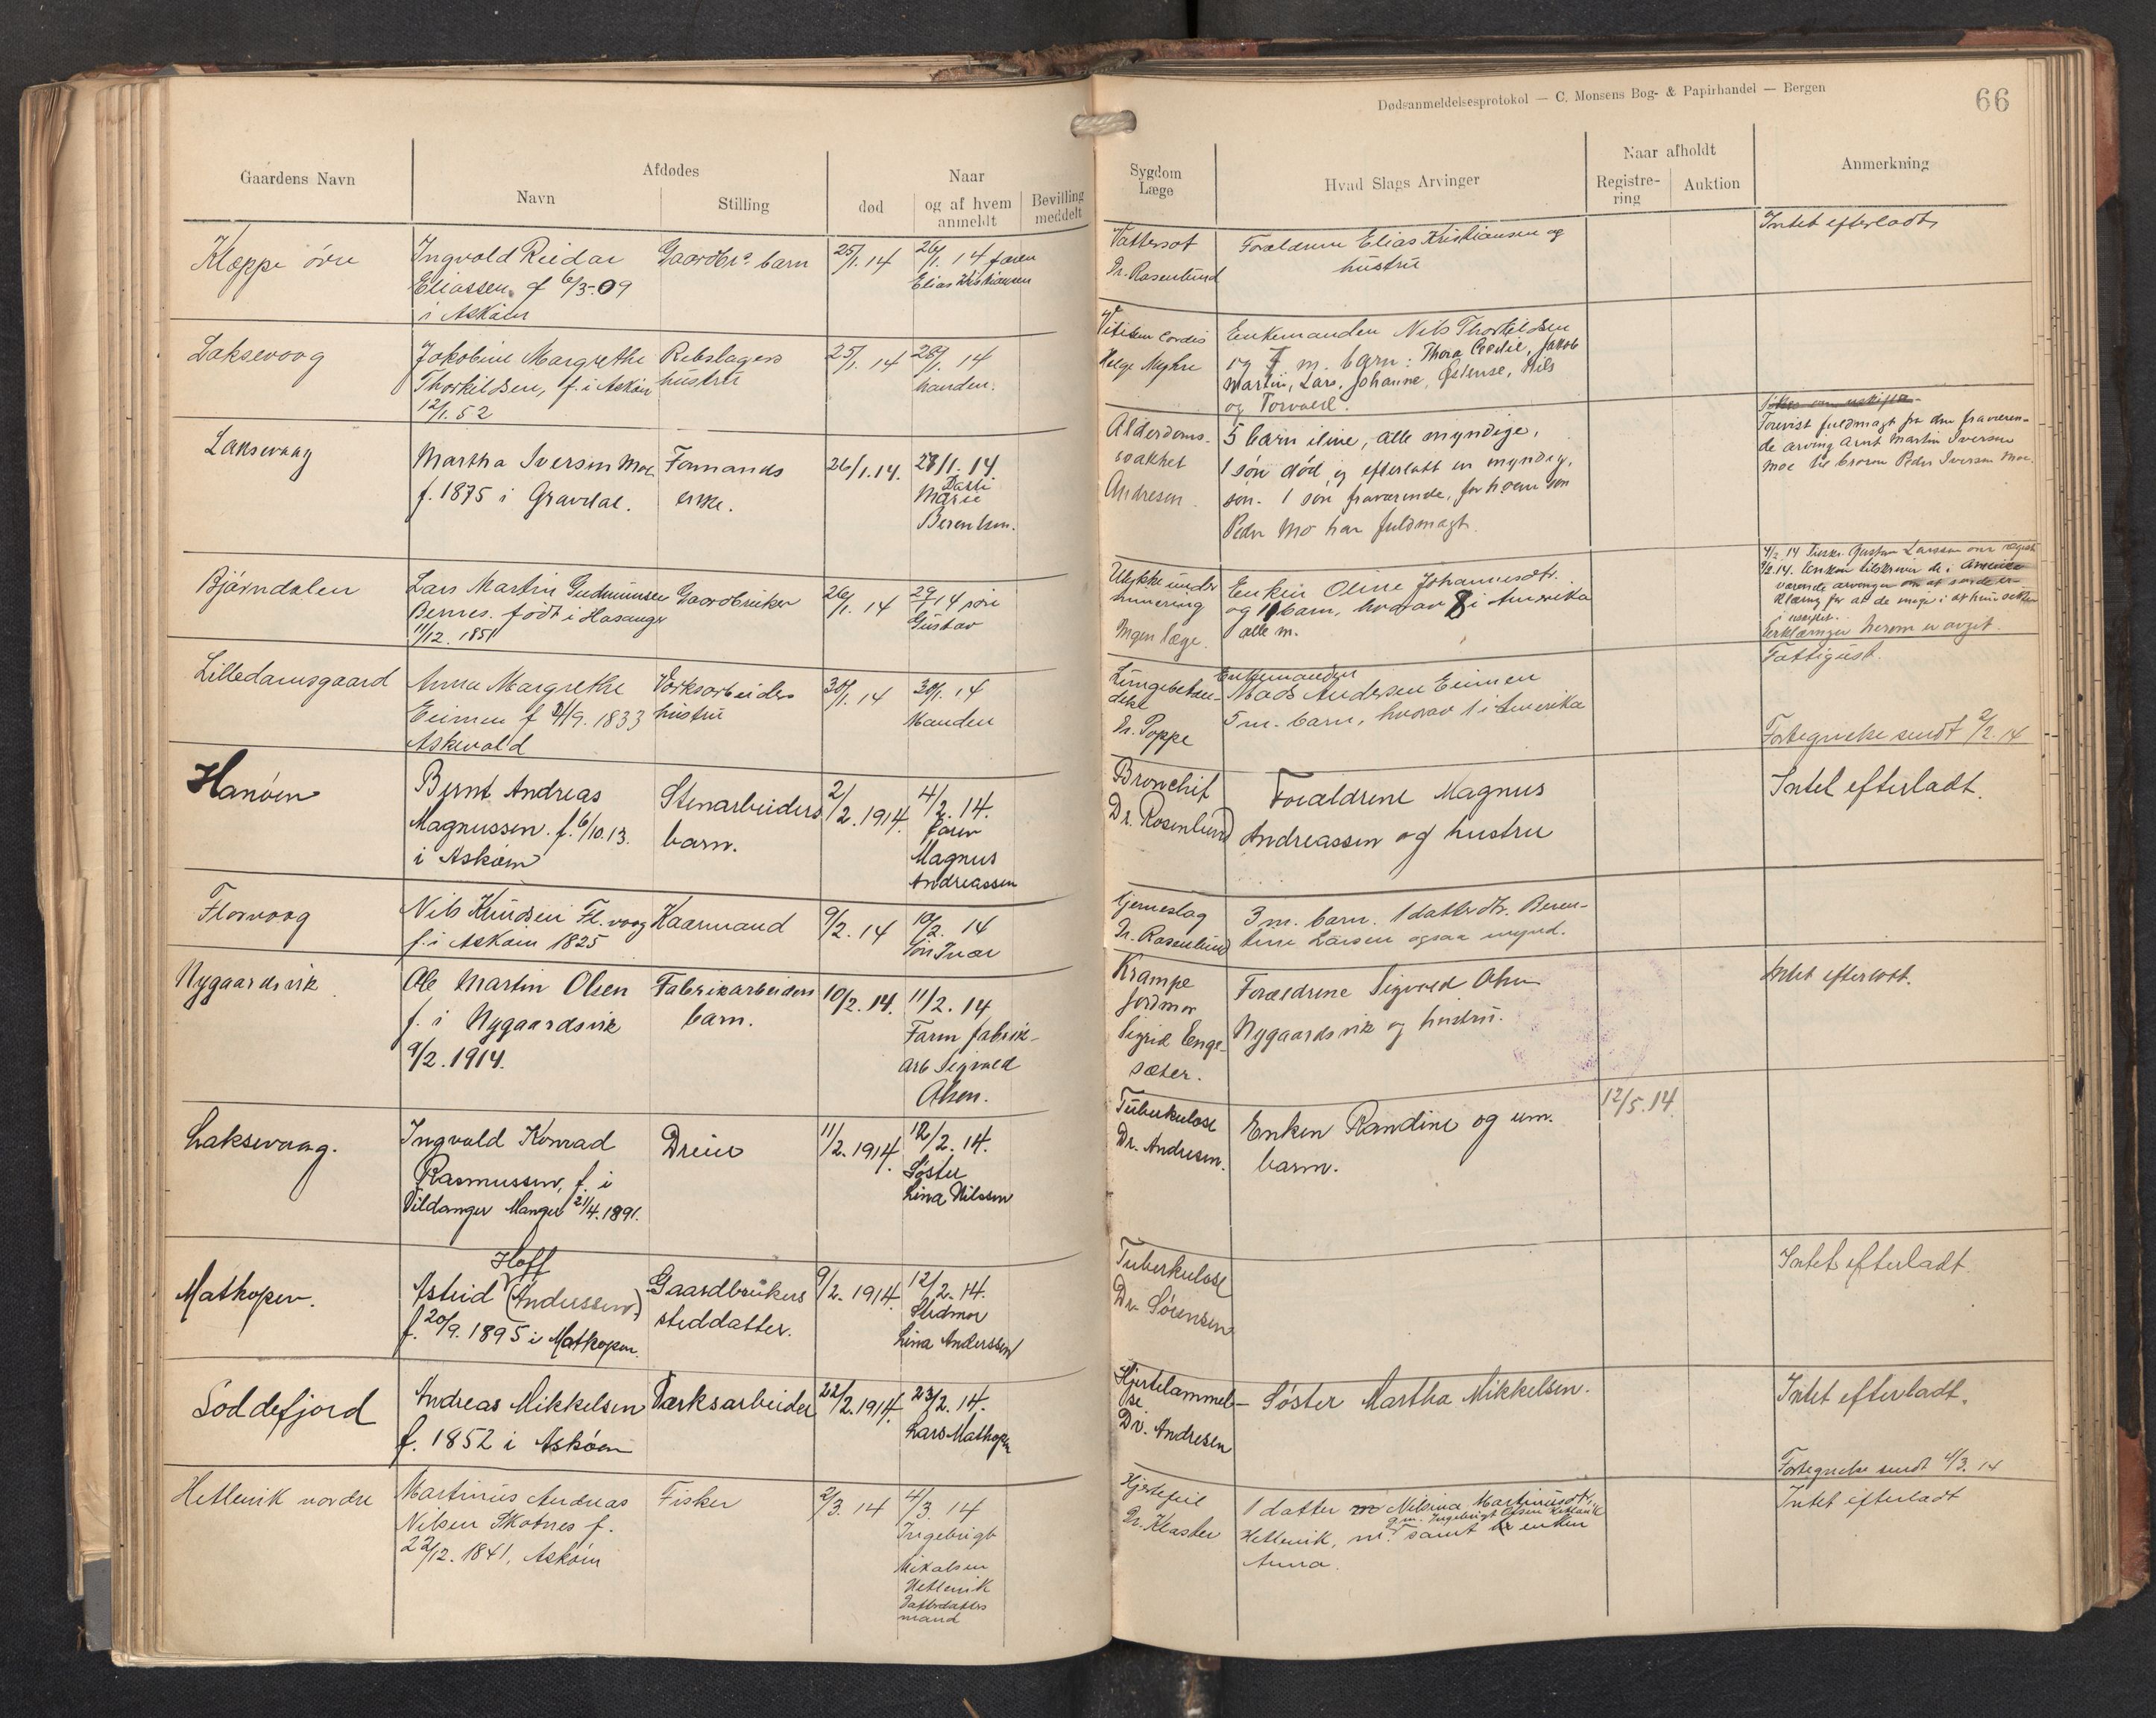 Dødsanmeldelsesprotokol — C. Monsens Bog- & Papirhandel — Bergen
66
Gaardens Navn
Afdødes
Navn
Stilling
Naar
død
og af hvem
anmeldt
Bevilling
meddelt
Sygdom
Læge
Hvad Slags Arvinger
Naar afholdt
Registre-
ring
Auktion
Anmerkning
Kleppe øvre
Ingvald Reidar
Eliassen f 6/3-09
i Askøen
Gaardbr. barn
25/1. 14
26/1. 14 faren
Elias Kristiansen
Vattersot
Dr. Rosenlund
Forældrene Elias Kristiansen og
hustru
Intet efterladt
Laksevaag
Jakobine Margrethe
Thorkildsen, f. i Askøen
12/1. 52
Rebslagers
hustru
25/1. 14
28/1. 14
manden.
Vitium cordis
Helge Myhre
Enkemanden Nils Thorkildsen
og 7 m. barn: Thora Cecilie, Jakob
Martin, Lars, Johanne, Nils
og Torvald.
Laksevaag
Martha Iversen Moe
f. 1875 i Gravdal.
Formands
enke.
26/1. 14.
28/1. 14
Datti
Marie
Berentsen.
Alderdoms-
svakhet
Andresen
5 barn ilive, alle myndige,
1 søn død, og efterlatt en myndig,
søn. 1 søn fraværende, for hvem søn
Peder Mo har fuldmagt.
Forevist fuldmagt fra den fraværen-
de arving Arnt Martin Iversen
Moe til broren Peder Iversen Moe.
Bjørndalen
Lars Martin Gudmunsen
Bernes. født i Hosanger
11/12. 1851
Gaardbruker
26/1. 14
29/1 14 søn
Gustav
Ulykke under
minering
Ingen læge.
Enken Oline Johannesdtr.
og 11 barn, hvorav 8 i Amerika
alle m.
4/2 14 Gustav Larssen om
9/2. 14. Enken tilskriver de i Amerika
værende arvinger om at sende er-
klæring for at de
i uskiftet.
Erklæringer herom er avgit.
Lilledamsgaard
Anna Margrethe
Eeimen f 24/9. 1833
Askevold
Værksarbeiders
hustru
30/1. 14
30/1. 14
Manden
Lungebetæn-
delse
Dr. Poppe
Enkemanden
Mads Andersen Eeimen
5 m. barn, hvorav 1 i Amerika
Fattigust.
Fortegnelse sendt 2/2. 14
Hanøen
Bernt Andreas
Magnussen. f. 6/10. 13.
i Askøen
Stenarbeiders
barn.
2/2. 1914.
4/2. 14.
faren
Magnus
Andreassen
Bronchit
Dr. Rosenlund
Forældrene Magnus
Andreassen og hustru
Intet efterladt.
Florvaag
Nils Knudsen Fl.vaag
f. i Askøen 1825
Kaarmand
9/2. 14
10/2. 14
søn Ivar
Hjerneslag
Dr. Rosenlund
3 m. barn. 1 datter dtr. Beren-
tine Larsen ogsaa mynd.
Nygaardsvik
Ole Martin Olsen
f. i Nygaardsvik
9/2. 1914.
Fabrikarbeiders
barn.
10/2. 14.
11/2. 14
Faren fabrik-
arb Sigvald
Olsen.
Krampe
Jordmor
Sigrid Enge-
sæter.
Forældrene Sigvald Olsen
Nygaardsvik og hustru.
Intet efterlatt.
Laksevaag.
Ingvald Konrad
Rasmussen, f. i
Vildanger Manger 21/4. 1891.
Dreier
11/2. 1914.
12/2. 14.
Søster
Lina Nilssen
Tuberkulose
Dr. Andresen.
Enken Randine og um.
barn.
12/5. 14.
Mathopen.
Hoff
Astrid (Anderssen)
f. 20/9. 1895 i Mathopen.
Gaardbrukers
steddatter.
9/2. 1914.
12/2. 14.
Stedmor
Lina Anderssen
Tuberkulose
Dr. Sørensen
Intet efterladt.
Loddefjord
Andreas Mikkelsen
f. 1852 i Askøen
Værksarbeider
22/2. 1914.
23/2. 14.
Lars Mathopen
Hjertelammel-
se
Dr. Andresen
Søster Martha Mikkelsen.
Intet efterladt.
Fortegnelse sendt 4/3. 14
Hetlevik nordre
Martinus Andreas
Nilsen Skotnes f.
22/12. 1841, Askøen
Fisker
2/3. 14
4/3. 14
Ingebrigt
Mikalsen
Hetlevik
Datterdatters
mand
Hjertefeil
Dr. Klasber
1 datter Nilsina Martinusdtr,
g.m. Ingebrigt Olsen Hetlevik
Hetlevik, m. samt enken
Anna.
Intet efterladt